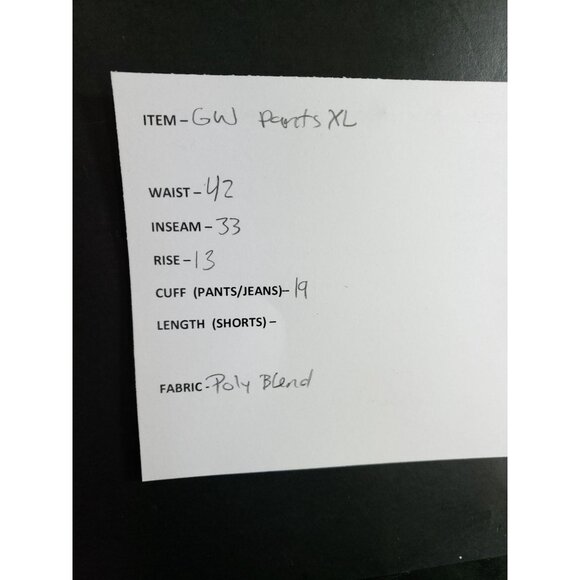 ITEM – GW Pants XL
WAIST – 42
INSEAM – 33
RISE – 13
CUFF (PANTS/JEANS)– 19
LENGTH (SHORTS) –
FABRIC - Poly Blend